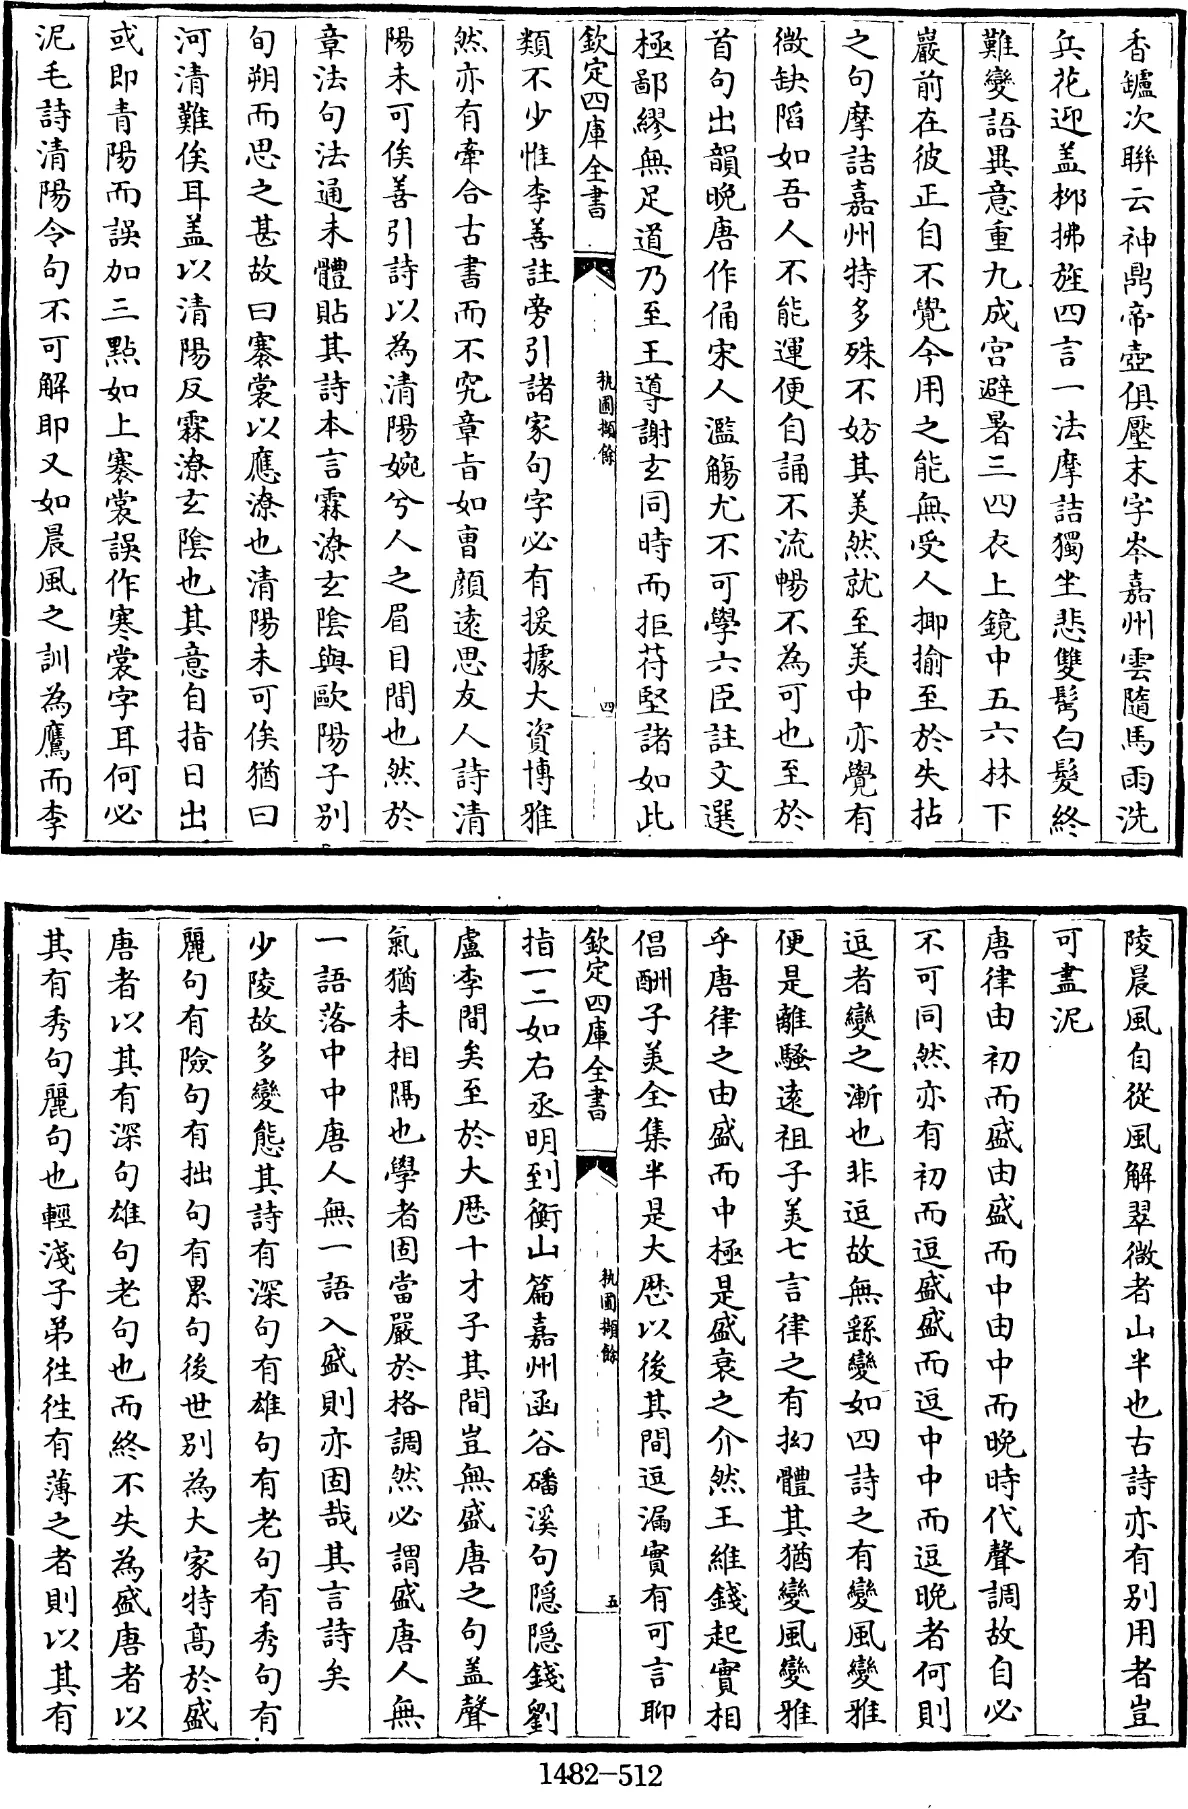 香鑪次聯云神鼎帝壺俱壓末字岑嘉州雲隨馬雨洗
兵花迎盖柳拂旌四言一法摩詰獨坐悲雙髩白髮終
難變語異意重九成宮避暑三四衣上鏡中五六林下
巖前在彼正自不覺今用之能無受人揶揄至於失拈
之句摩詰嘉州特多殊不妨其美然就至美中亦覺有
微缺陷如吾人不能運便自誦不流暢不為可也至於
首句出韻晚唐作俑宋人濫觴尤不可學六臣註文選
極鄙繆無足道乃至王導謝玄同時而拒苻堅諸如此
欽定四庫全書
執圃擷餘
四
類不少惟李善註旁引諸家句字必有援據大資博雅
然亦有牽合古書而不究章旨如曺顔遠思友人詩清
陽未可俟善引詩以為清陽婉兮人之眉目間也然於
章法句法通未體貼其詩本言霖潦玄陰與歐陽子别
旬朔而思之甚故曰褰裳以應潦也清陽未可俟猶曰
河清難俟耳盖以清陽反霖潦玄陰也其意自指日出
或即青陽而誤加三點如上褰裳誤作寒裳字耳何必
泥毛詩清陽令句不可解即又如晨風之訓為鷹而李
陵晨風自從風解翠微者山半也古詩亦有别用者豈
可盡泥
唐律由初而盛由盛而中由中而晚時代聲調故自必
不可同然亦有初而逗盛盛而逗中中而逗晚者何則
逗者變之漸也非逗故無繇變如四詩之有變風變雅
便是離騷遠祖子美七言律之有拗體其猶變風變雅
乎唐律之由盛而中極是盛衰之介然王維錢起實相
倡酬子美全集半是大厯以後其間逗漏實有可言聊
欽定四庫全書
執圃擷餘
五
指一二如右丞明到衡山篇嘉州函谷磻溪句隐隐錢劉
盧李間矣至於大厯十才子其間豈無盛唐之句盖聲
氣猶未相隔也學者固當嚴於格調然必謂盛唐人無
一語落中中唐人無一語入盛則亦固哉其言詩矣
少陵故多變態其詩有深句有雄句有老句有秀句有
麗句有險句有拙句有累句後世别為大家特高於盛
唐者以其有深句雄句老句也而終不失為盛唐者以
其有秀句麗句也輕淺子弟徃徃有薄之者則以其有
1482-512